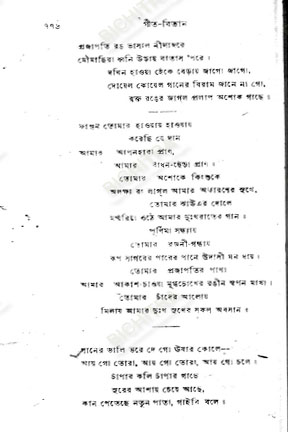 ৭৭৬ গীত-বিতান
প্রজাপতি রঙ ভাসাল নীলাম্বরে
মৌমাছিরা ধ্বনি উড়ায় বাতাস 'পরে।
দখিন হাওয়া হেঁকে বেড়ায় জাগো জাগো,
দোয়েল কোয়েল গানের বিরাম জানে না গো,
রক্ত রঙের জাগল প্রলাপ অশোক গাছে॥
ফাগুন তোমার হাওয়ায় হাওয়ায়
করেছি যে দান
আমার আপনহারা প্রাণ,
আমার বাঁধন-ছেঁড়া প্রাণ।
তোমার অশোকে কিংশুকে
অলক্ষ্য রং লাগল আমার অকারণের সুখে,
তোমার ঝাউএর দোলে
মর্ম্মরিয়া ওঠে আমার দুঃখরাতের গান॥
পূর্ণিমা সন্ধ্যায়
তোমার রজনী-গন্ধায়
রূপ সাগরের পারের পানে উদাসী মন ধায়।
তোমার প্রজাপতির পাখা
আমার আকাশ-চাওয়া মুগ্ধচোখের রঙীন স্বপন মাখা।
তোমার চাঁদের আলোয়
মিলায় আমার দুঃখ সুখের সকল অবসান॥
গানের ডালি ভরে দে গো উষার কোলে—
আয় গো তোরা, আয় গো তোরা, আয় গো চলে॥
চাঁপার কলি চাঁপার গাছে
সুরের আশায় চেয়ে আছে,
কান পেতেছে নতুন পাতা, গাইবি বলে॥